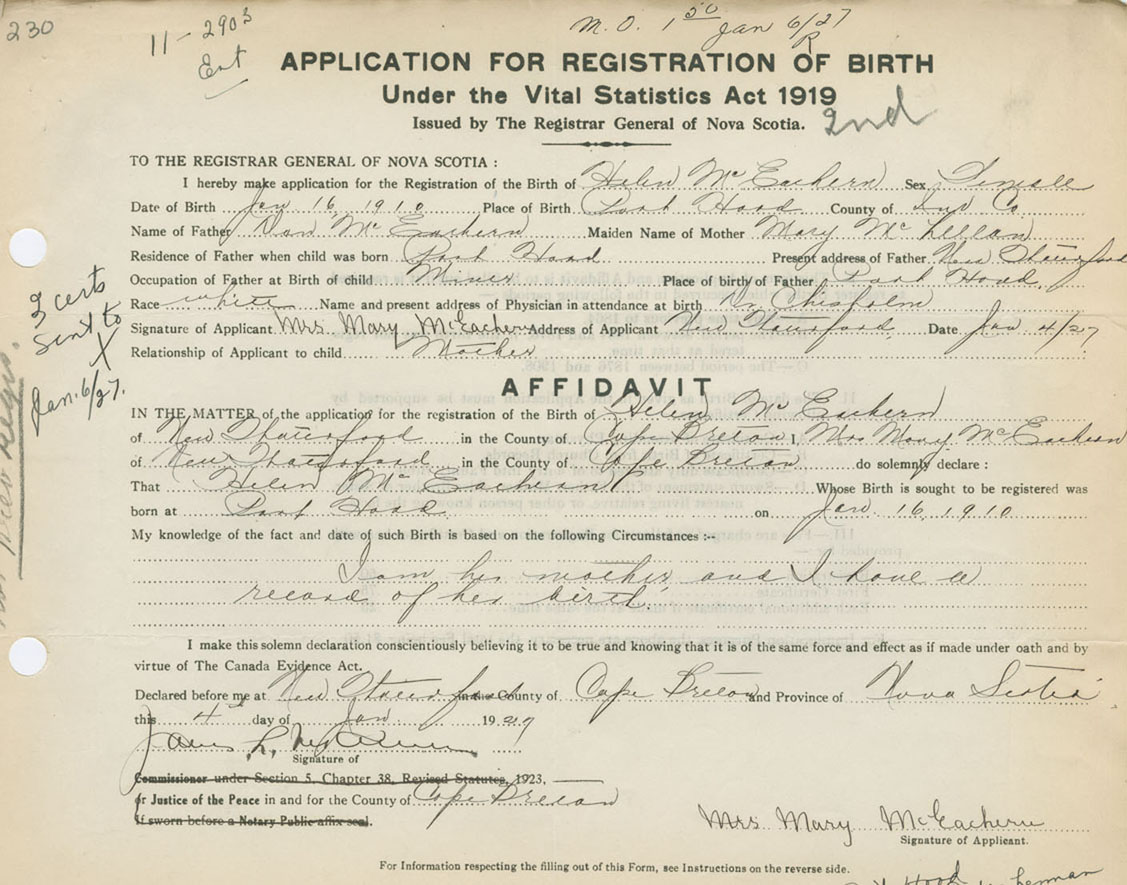 230
11-2903
Ent
M.O. 1 50 Jan 6/27
R
APPLICATION FOR REGISTRATION OF BIRTH
Under the Vital Statistics Act 1919
2nd
Issued by The Registrar General of Nova Scotia.
TO THE REGISTRAR GENERAL OF NOVA SCOTIA :
I hereby make application for the Registration of the Birth of Helen McEachern Sex Female
Date of Birth Jan 16, 1910 Place of Birth Port Hood County of Inv Co
Name of Father Dan McEachern Maiden Name of Mother Mary McLellan
Residence of Father when child was born Port Hood Present address of Father New Waterford
Occupation of Father at Birth of child Miner Place of birth of Father Port Hood.
Race white Name and present address of Physician in attendance at birth Dr Chisholm
Signature of Applicant Mrs Mary McEachern Address of Applicant New Waterford Date Jan 4/27
Relationship of Applicant to child Mother
3 certs
sent to
X
Jan. 6/27.
AFFIDAVIT
IN THE MATTER of the application for the registration of the Birth of Helen McEachern
of New Waterford in the County of Cape Breton I, Mrs Mary McEachern
of New Waterford in the County of Cape Breton do solemnly declare :
That Helen McEachern Whose Birth is sought to be registered was
born at Port Hood on Jan. 16, 1910
My knowledge of the fact and date of such Birth is based on the following Circumstances :--
I am her mother and I have a
record of her birth.
I make this solemn declaration conscientiously believing it to be true and knowing that it is of the same force and effect as if made under oath and by
virtue of The Canada Evidence Act.
Declared before me at New Waterford in the County of Cape Breton and Province of Nova Scotia
this 4th day of Jan. 1927
James L.
Signature of
Commissioner under Section 5, Chapter 38, Revised Statutes, 1923,
or Justice of the Peace in and for the County of Cape Breton
If sworn before a Notary Public affix seal.
Mrs. Mary McEachern
Signature of Applicant.
For Information respecting the filling out of this Form, see Instructions on the reverse side.
Hood